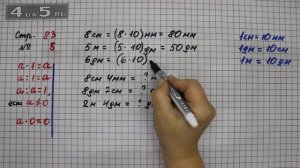 4OU5.RU
Стр. 83
№ 5
a · 1 = a
1 · a = a
a : a = 1,
если a ≠ 0
a · 0 = 0
8 см = (8 · 10) мм = 80 мм
5 м = (5 · 10) дм = 50 дм
6 дм = (6 · 10)
8 см 4 мм = ?
8 дм 2 см = ?
2 м 4 дм = ?
1 см = 10 мм
1 дм = 10 см
1 м = 10 дм